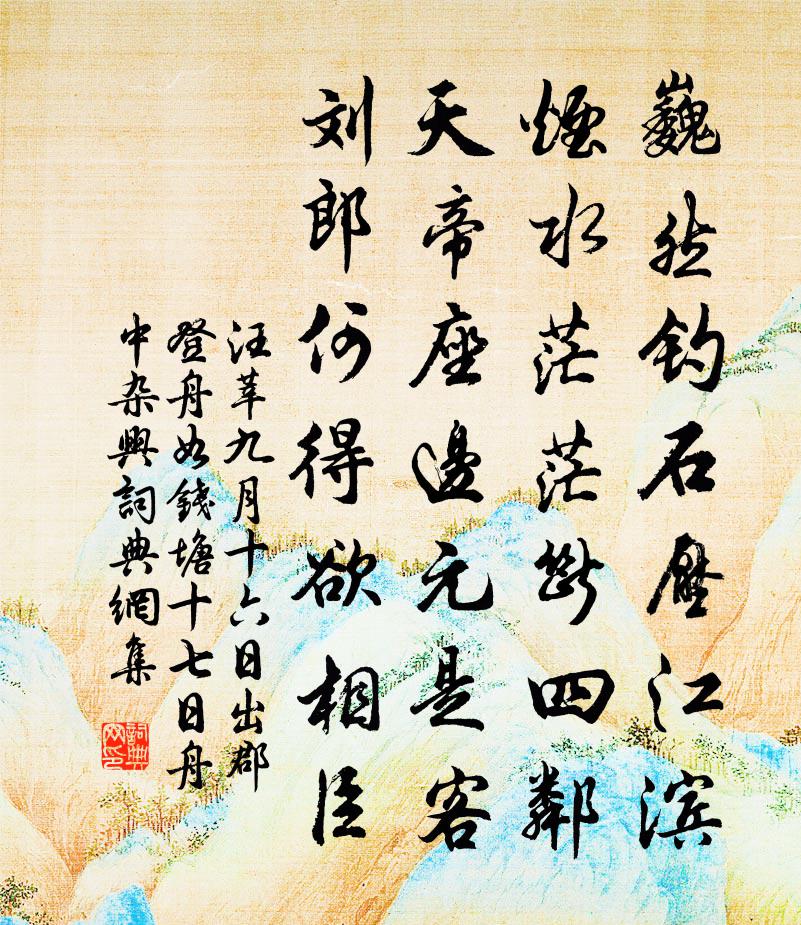 巍然钓石压江滨
烟水茫茫断四邻
天帝座邊元是客
刘郎何得欲相臣
汪莘九月十六日出郡
登舟如錢塘十七日舟
中杂興詞典網集
詞典
网印